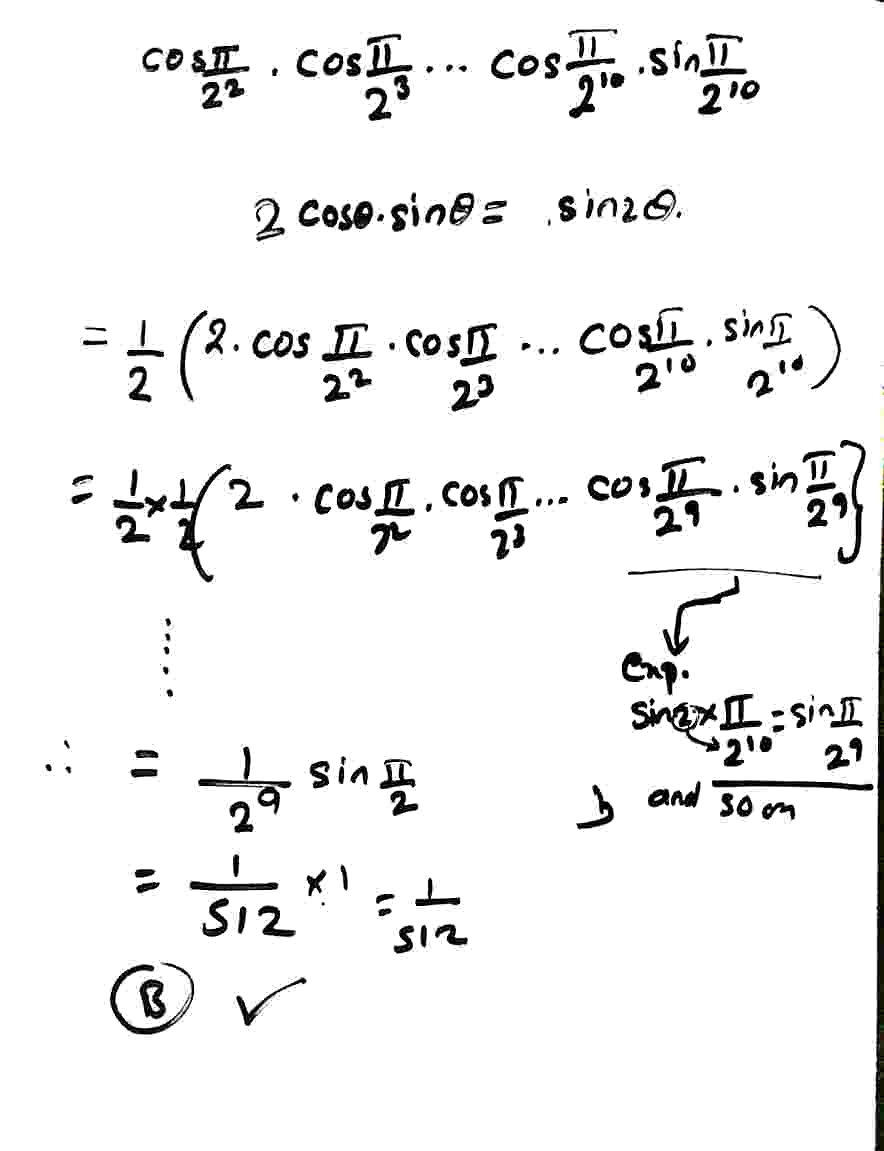 cos π/2² . cos π/2³ ... cos π/2¹⁰ . sin π/2¹⁰
2 cosθ.sinθ = sin2θ.
= 1/2 (2. cos π/2² . cos π/2³ ... cos π/2¹⁰ . sin π/2¹⁰)
= 1/2 × 1/2 (2 . cos π/2² . cos π/2³ ... cos π/2⁹ . sin π/2⁹}
Exp.
sin2 × π/2¹⁰ = sin π/2⁹
and so on
∴ = 1/2⁹ sin π/2
= 1/512 × 1 = 1/512
B ✓